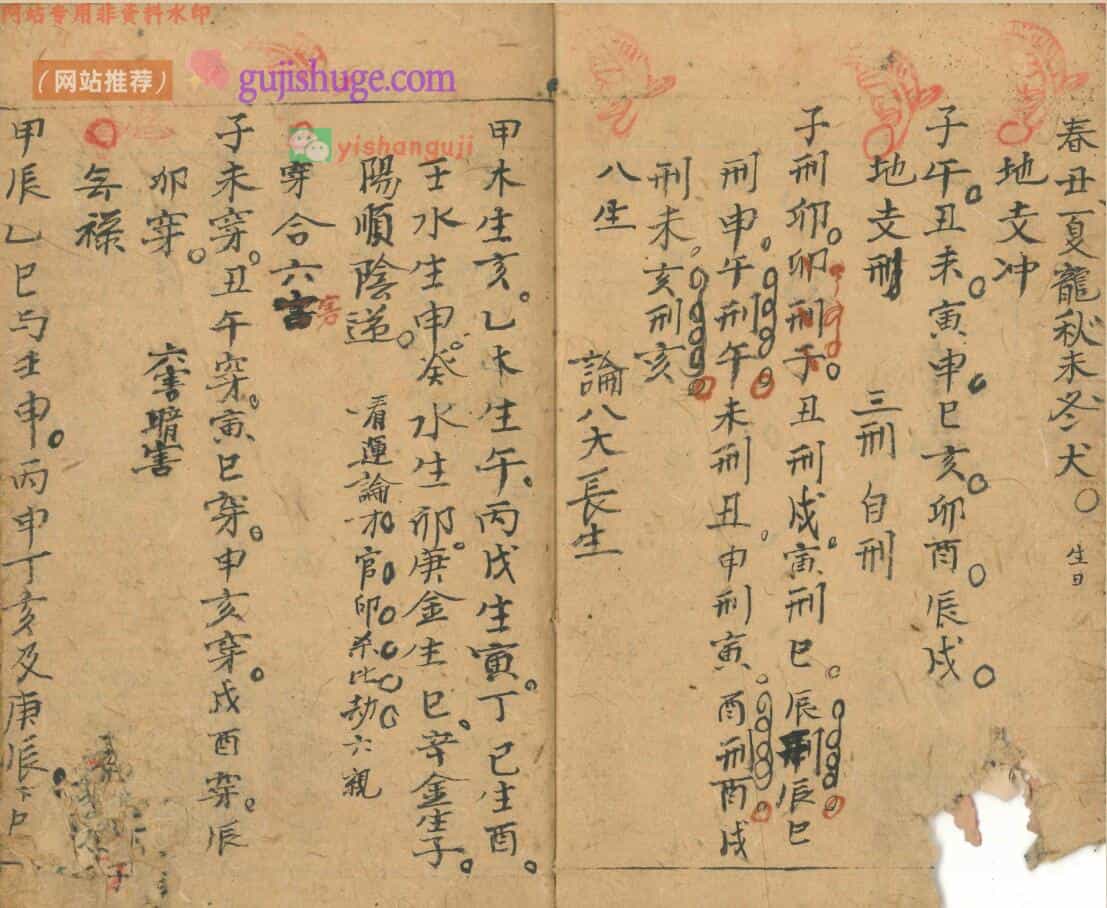 网站专用非资料水印
(网站推荐)
gujishuge.com
yishanguji
春丑夏龍秋未冬犬。 生日
地支冲
子午。丑未。寅申。巳亥。卯酉。辰戌。
地支刑 三刑 自刑
子刑卯。卯刑子。丑刑戌。寅刑巳。辰刑辰。巳
刑申。午刑午。未刑丑。申刑寅。酉刑酉。戌
刑未。亥刑亥。
八生 論八大長生
甲木生亥。乙木生午。丙戊生寅。丁己生酉。
壬水生申。癸水生卯。庚金生巳。辛金生子。
陽順陰逆。 看運論才官印杀比劫六親
穿合六害 害
子未穿。丑午穿。寅巳穿。申亥穿。戌酉穿。辰
卯穿。 六害暗害
無祿
甲辰乙巳与壬申。丙申丁亥及庚辰。